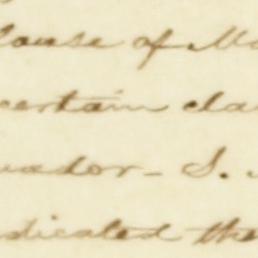 louse of Mo
certain cla
uador - S.
dicated the